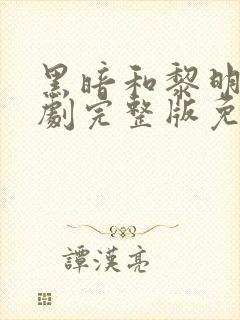 黑暗和黎明
劇完整版免
譚漢亮